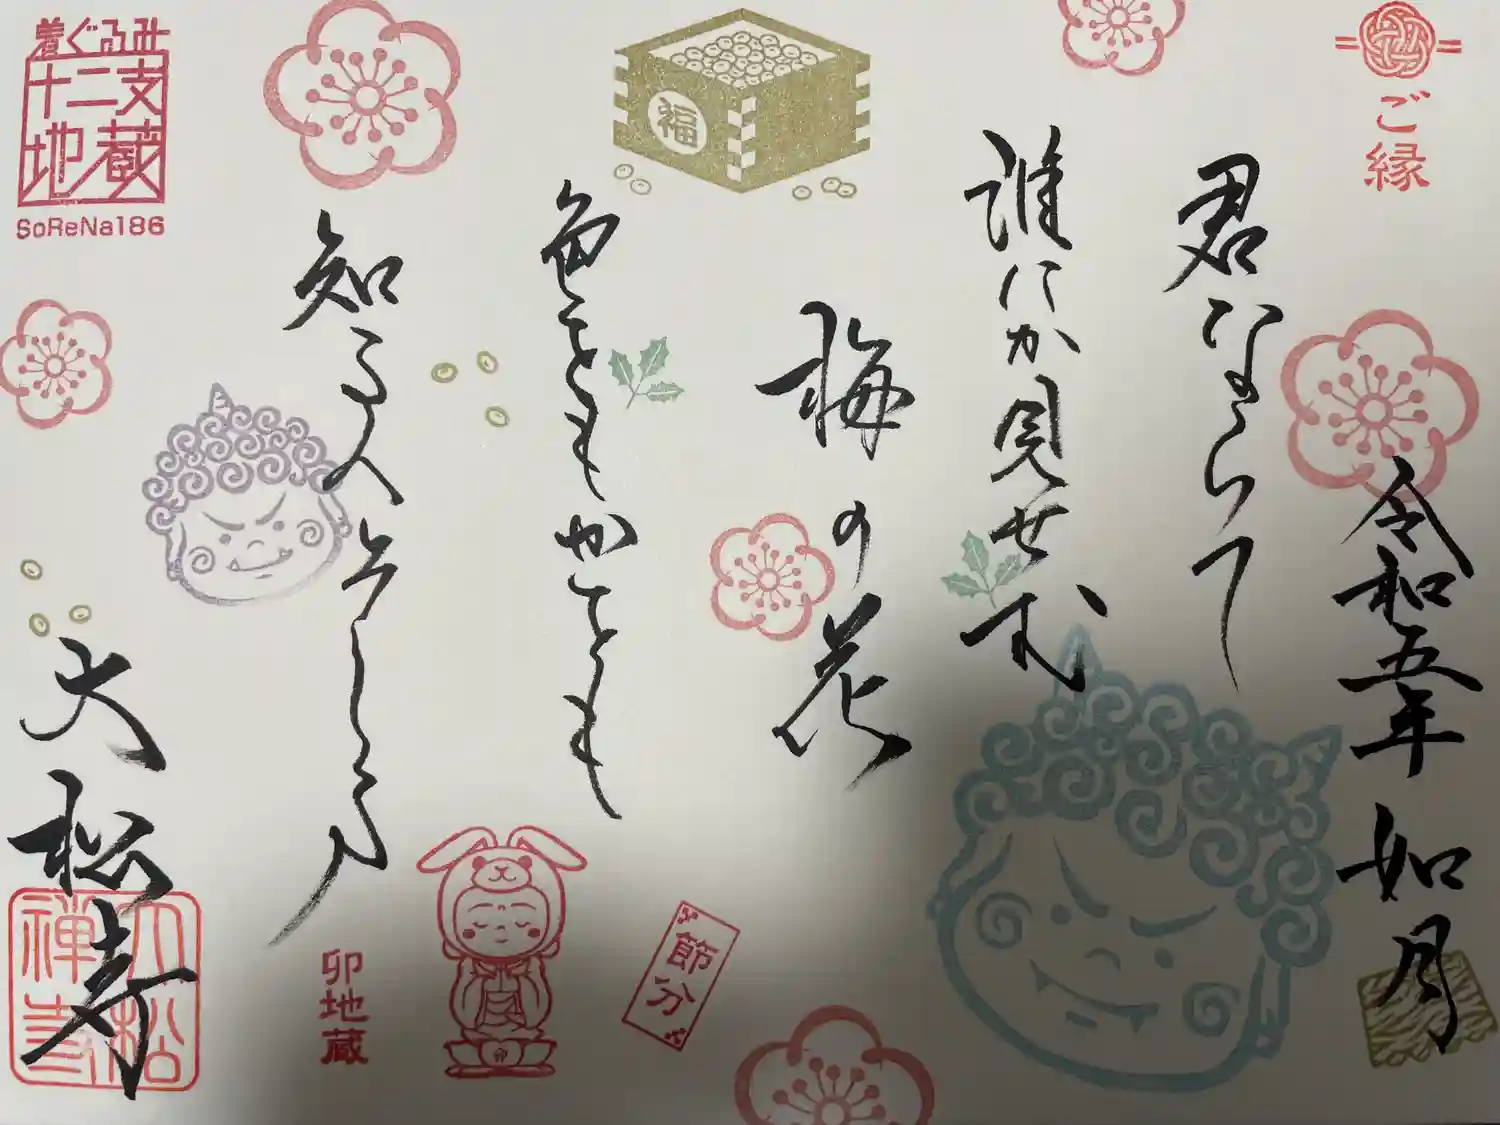 ご縁
令和五年 如月
君ならて
誰にか見せむ
梅の花
色をもかをも
知る人そしる
大松寺
大松禅寺
福
節分
卯地蔵
着ぐるみ
十二支
地蔵
SoReNa186